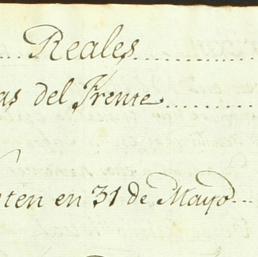 Reales
as del Frente
ten en 31 de Mayo